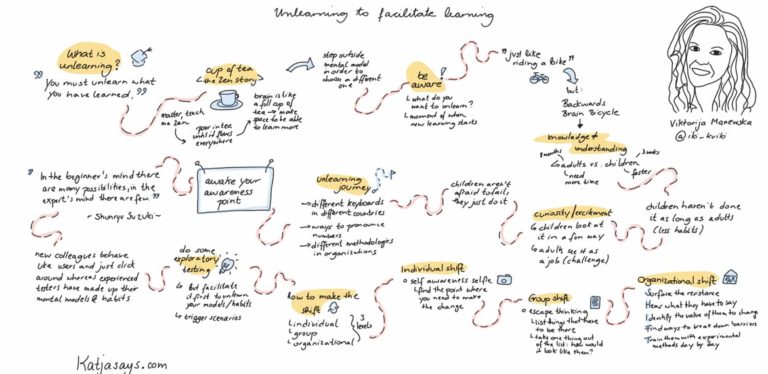 Unlearning to facilitate learning
What is
unlearning?
"You must unlearn what
you have learned."
cup of tea
(the Zen story)
master, teach
me Zen
pour in tea
until it flows
everywhere
brain is like
a full cup of
tea → make
space to be able
to learn more
step outside
mental model
in order to
choose a different
one
be
aware
!
↳ what do you
want to unlearn?
↳ moment of when
new learning starts
"just like
riding a bike"
but:
Backwards
Brain Bicycle
Viktorija Manevska
@ibi_kviki
knowledge ≠
understanding
8 months
3 weeks
↳ adults vs. children
need
more time
faster
children haven't done
it as long as adults
(less habits)
curiosity/excitement
↳ children look at
it in a fun way
↳ adults see it as
a job (challenge)
children aren't
afraid to fail,
they just do it
unlearning
journey
→ different keyboards
in different countries
→ ways to pronounce
numbers
→ different methodologies
in organizations
awake your
awareness
point
"In the beginner's mind there
are many possibilities, in the
expert's mind there are few."
~ Shunryu Suzuki ~
new colleagues behave
like users and just click
around whereas experienced
testers have made up their
mental models & habits
do some
exploratory
testing
↳ but facilitate
it first to unlearn
your models/habits
↳ trigger scenarios
how to make the
shift
↳ individual
group
organizational
3
levels
Individual shift
self awareness selfie
↳ find the point where
you need to make
the change
Group shift
escape thinking
↳ list things that have
to be there
↳ take one thing out
of the list: how would
it look like then?
Organizational shift
Surface the resistance
Hear what they have to say
Identify the value of them to change
Find ways to break down barriers
Train them with experimental
methods day by day
Katjasays.com